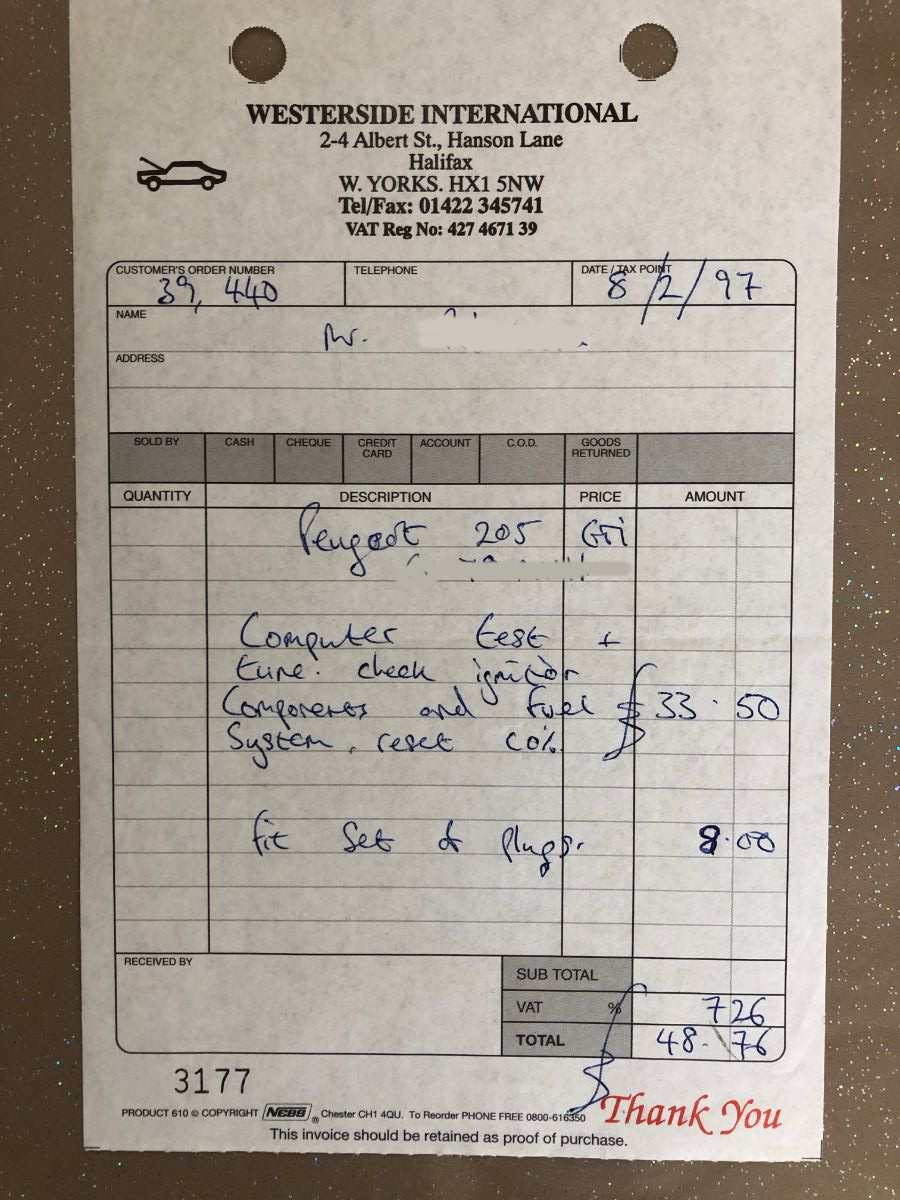 WESTERSIDE INTERNATIONAL
2-4 Albert St., Hanson Lane
Halifax
W. YORKS. HX1 5NW
Tel/Fax: 01422 345741
VAT Reg No: 427 4671 39
CUSTOMER'S ORDER NUMBER TELEPHONE DATE / TAX POINT
39, 440 8/2/97
NAME
Mr.
ADDRESS
SOLD BY CASH CHEQUE CREDIT CARD ACCOUNT C.O.D. GOODS RETURNED
QUANTITY DESCRIPTION PRICE AMOUNT
Peugeot 205 GTi
Computer test +
tune. check ignition
Components and Fuel 33.50
System, reset CO%.
fit set of plugs. 8.00
RECEIVED BY
SUB TOTAL
VAT % 726
TOTAL 48.76
3177
PRODUCT 610 © COPYRIGHT NEBS ® Chester CH1 4QU. To Reorder PHONE FREE 0800-616350
Thank You
This invoice should be retained as proof of purchase.